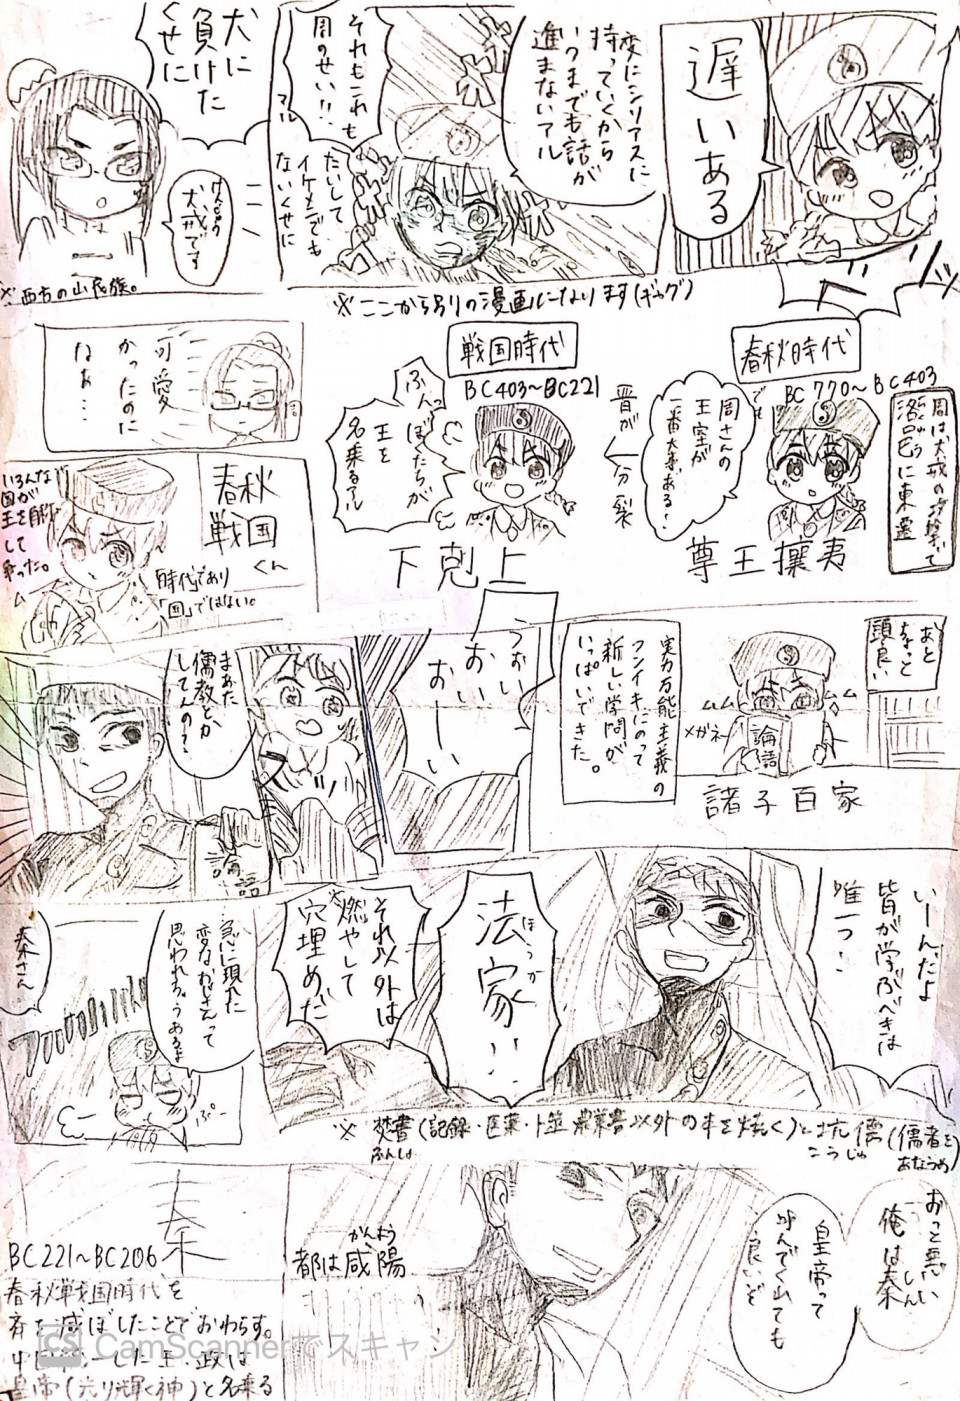 遅いある
変にシリアスに
持っていくから
いつまでも話が
進まないアル
それもこれも
周のせい!!
アル
たいして
イケメンでも
ないくせに
犬に
負けた
くせに
犬戎です
※西方の山民族。
※ここから別りの漫画になります(ギャグ)
周は犬戎の攻撃で
洛邑に東遷
春秋時代
BC770~BC403
周さんの
王室が
一番大事ある!
尊王攘夷
晋が
分裂
戦国時代
BC403~BC221
ふんっ
ぼくたちが
王を
名乗るアル
下剋上
可愛
かったのに
なぁ…
春秋
戦国
くん
時代であり
「国」ではない。
いろんな
国が
王を自称
して
争った。
あと
ちょっと
頭良い
メガネ
論語
諸子百家
実力万能主義の
フンイキにのって
新しい学問が
いっぱいできた。
うおい
おい
おーい
まぁた
儒教とか
してんの?
論語
いーんだよ
皆が学ぶべきは
唯一つ!
ほうか
法家!!
それ以外は
燃やして
穴埋めだ
急に現れた
変なおじさんって
思われちゃうあるよ
秦さん
ぷー
※焚書(記録・医薬・卜筮・農業書以外の本を焼く)と坑儒(儒者を
ふんしょ
こうじゅ
あなうめ)
おっと悪い
俺は秦
しん
皇帝って
呼んでくれても
良いぜ
かんよう
都は咸陽
秦
BC221~BC206
春秋戦国時代を
斉を滅ぼしたことでおわらす。
CS CamScannerでスキャン
中国統一した王・政は
皇帝(光り輝く神)と名乗る